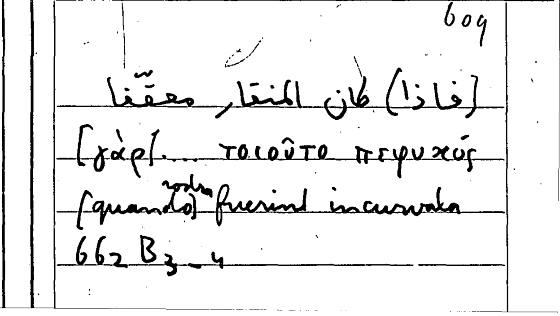 609
(فاذا) كان المنقار معقّفا
[γὰρ].... τοιοῦτο πεφυκός
(quando) rostra fuerint incurvata
662 B 3-4